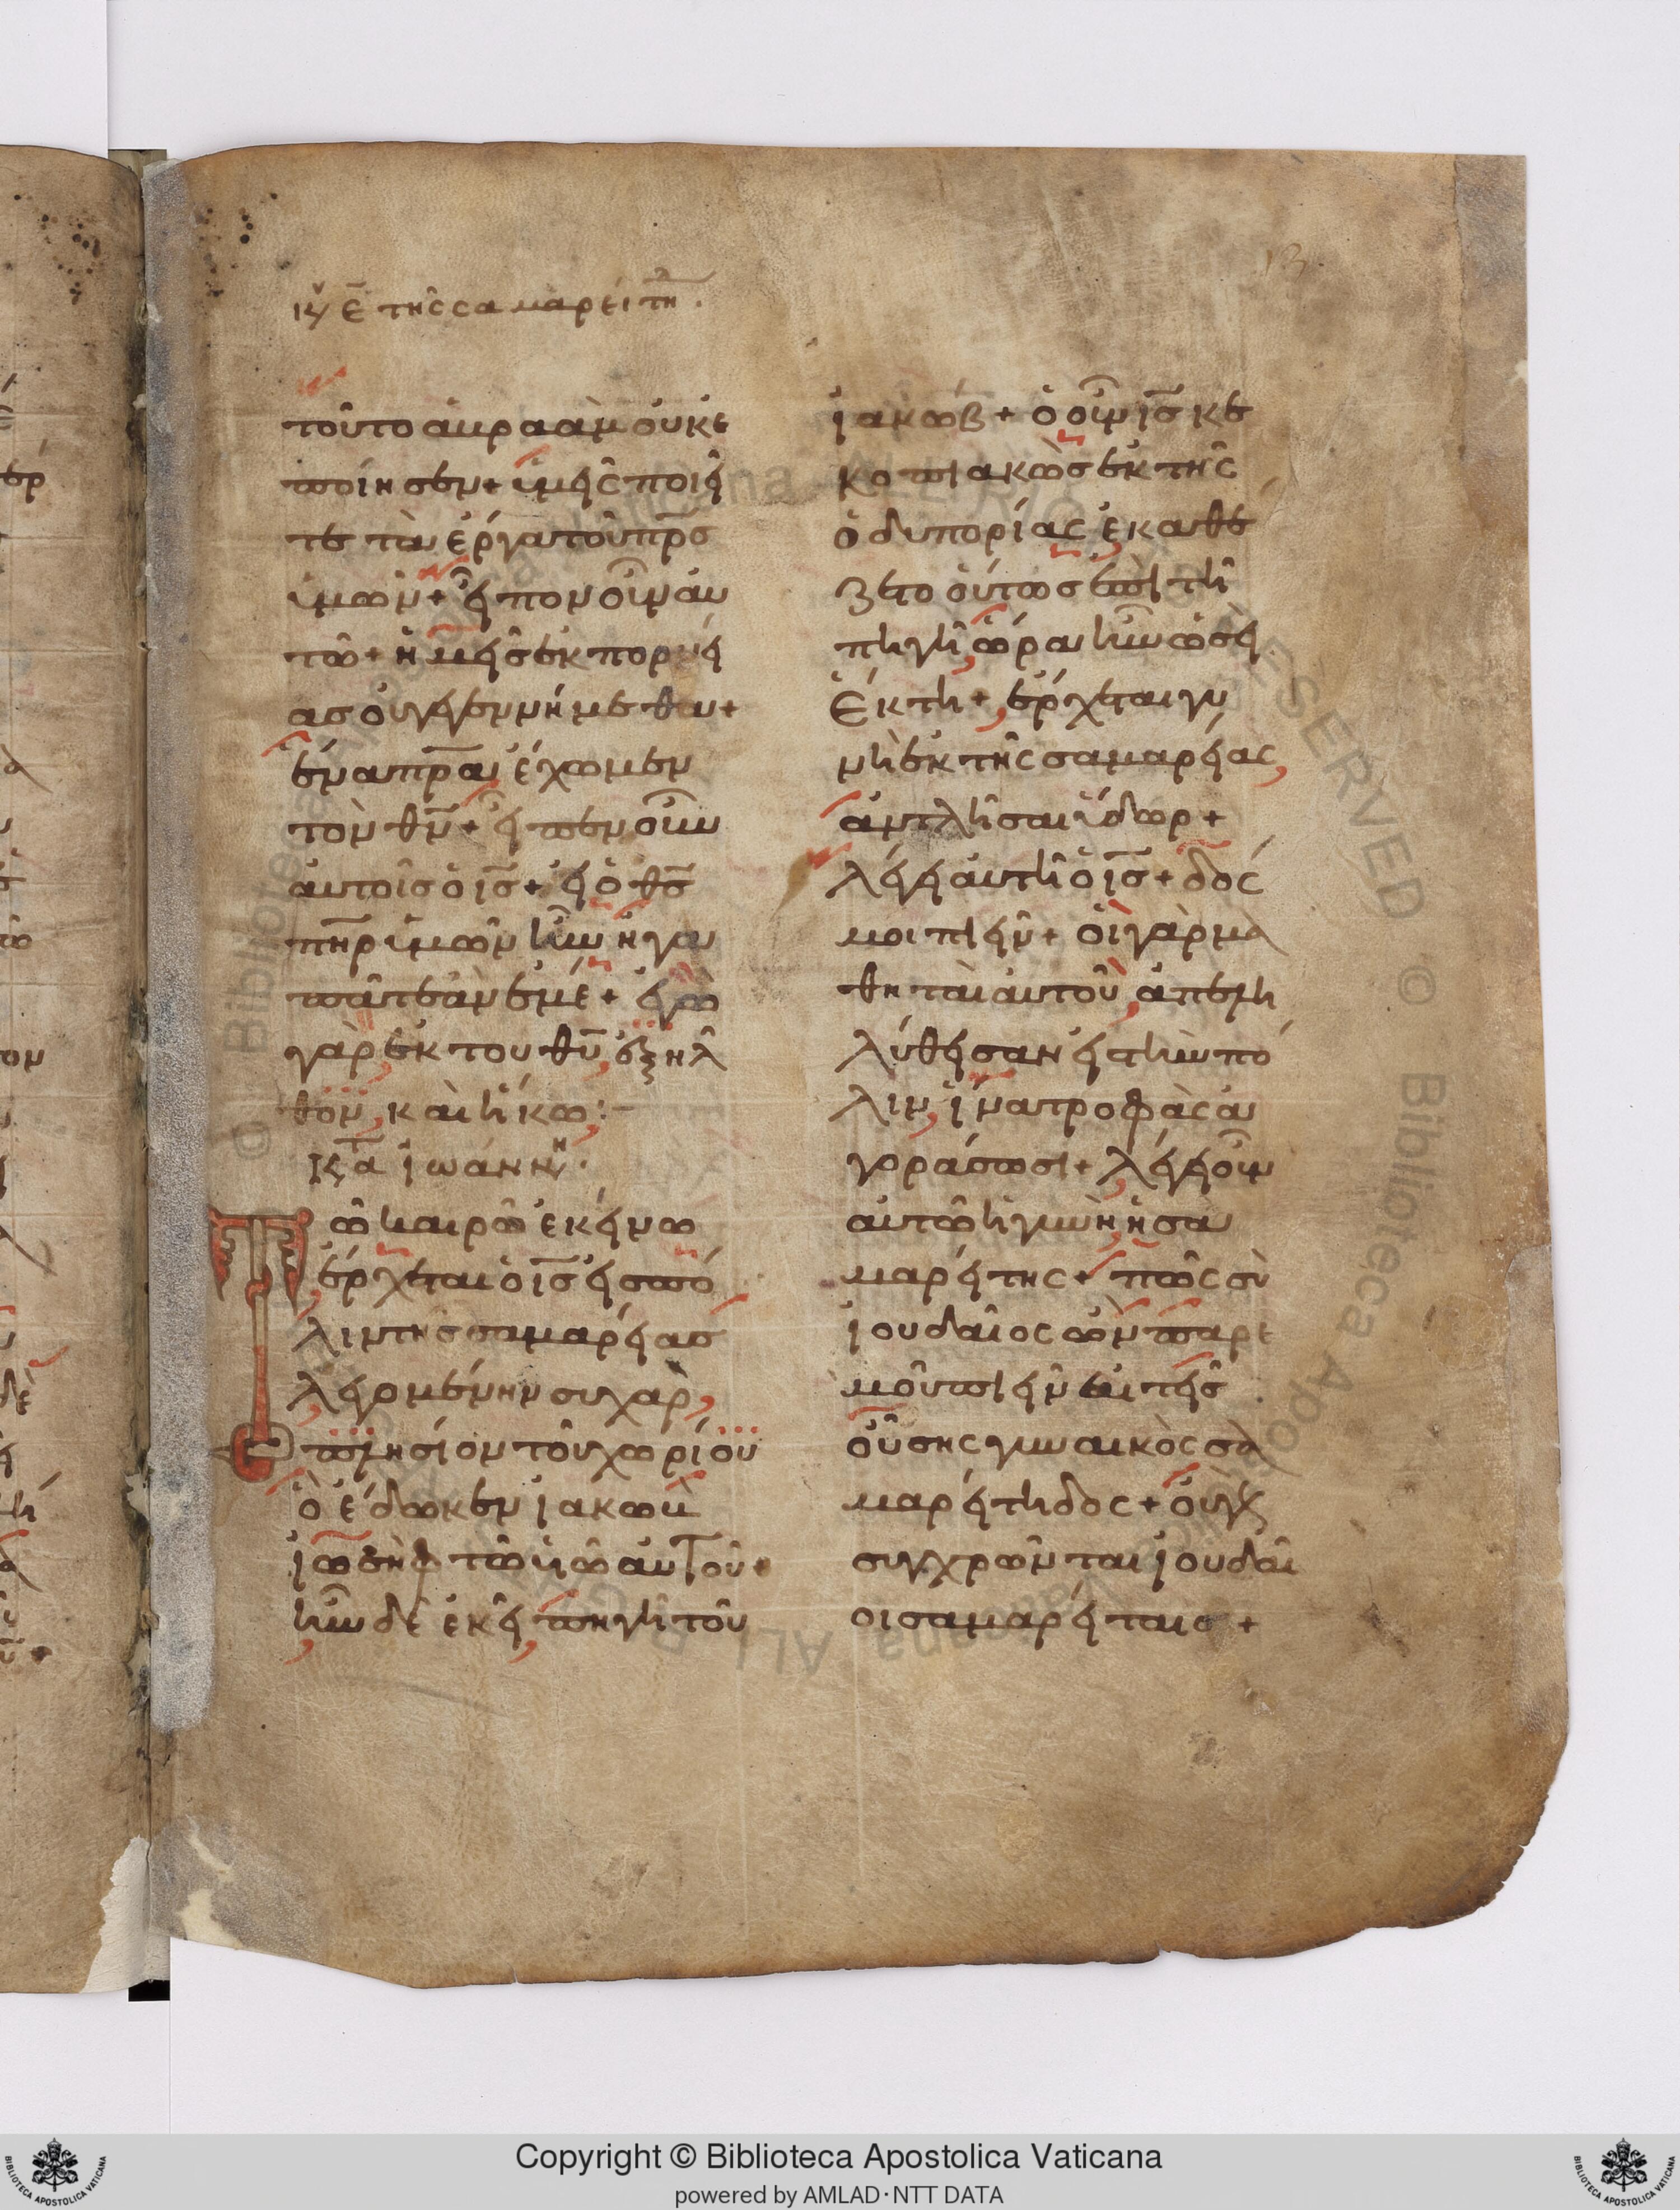 κυ ε της σαμαρείτη.
τοῦτο ἀβρααμ οὐκ ἐ
ποίησεν + ὑμεῖς ποιεῖ
τε τὰ ἔργα τοῦ πρσ
ὑμῶν + εἶπον οὖν αὐ
τῶ + ἡμεῖς ἐκ πορνεί
ασ οὐ γεγεννήμεθα +
ἕνα πρα ἔχωμεν
τὸν θν + εἶπεν οὖν
αὐτοῖσ ὁ ισ + εἰ ὁ θσ
πηρ ὑμῶν ἦν ἠγα
πᾶτε ἂν ἐμέ + ἐγὼ
γὰρ ἐκ του θυ ἐξῆλ
θον, καὶ ἥκω :-
κτα ἰωάννην.
Τῶ καιρῶ ἐκείνω
ἔρχεται ὁ ισ εἰσ πό
λιν τῆσ σαμαρείασ
λεγομένην συχαρ,
πλησίον τοῦ χωρίου
ὃ ἔδωκεν ἰακὼβ
ἰωσὴφ τῶ υἱῶ αὐτοῦ +
ἦν δὲ ἐκεῖ πηγὴ τοῦ
ἰακώβ + ὁ οὖν ισ κε
κοπιακὼσ ἐκ τῆς
ὁδυπορίας ἐκαθέ
ζετο οὕτωσ ἐπὶ τῆ
πηγῆ, ὥρα ἦν ὡσεὶ
ἕκτη +, ἔρχεται γυ
νὴ ἐκ τῆς σαμαρείας,
ἀντλῆσαι ὕδωρ +
λέγει αὐτῆ ὁ ισ + δός
μοι πιεῖν + οἱ γὰρ μα
θηται αὐτοῦ, ἀπελη
λύθεισαν εἰς τὴν πό
λιν, ἵνα τροφὰς ἀ
γοράσωσι + λέγει οὖν
αὐτῶ ἡ γυνὴ ἡ σα
μαρείτης + πῶς σὺ
ἰουδαῖος ὢν παρ ἐ
μοῦ πιεῖν αἰτεῖσ
οὔσης γυναικὸς σα
μαρείτηδος + οὐ γὰρ
συγχρῶνται ἰουδαῖ
οι σαμαρείταις +
Copyright © Biblioteca Apostolica Vaticana
powered by AMLAD·NTT DATA